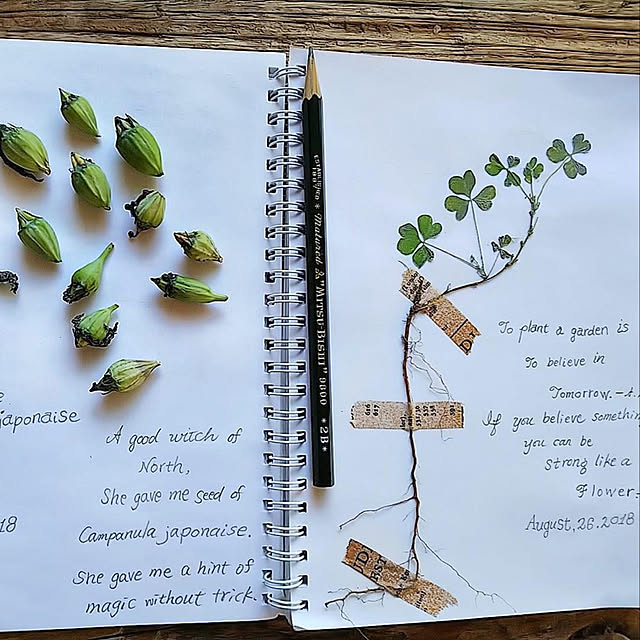 japonaise
A good witch of
North,
She gave me seed of
Campanula japonaise.
She gave me a hint of
magic without trick.
18
ESTABLISHED 1887 * Matured & "MITSU-BISHI" 9800 * 2B *
To plant a garden is
To believe in
Tomorrow.-A.
If you believe somethin
you can be
Strong like a
Flower.
August,26.2018